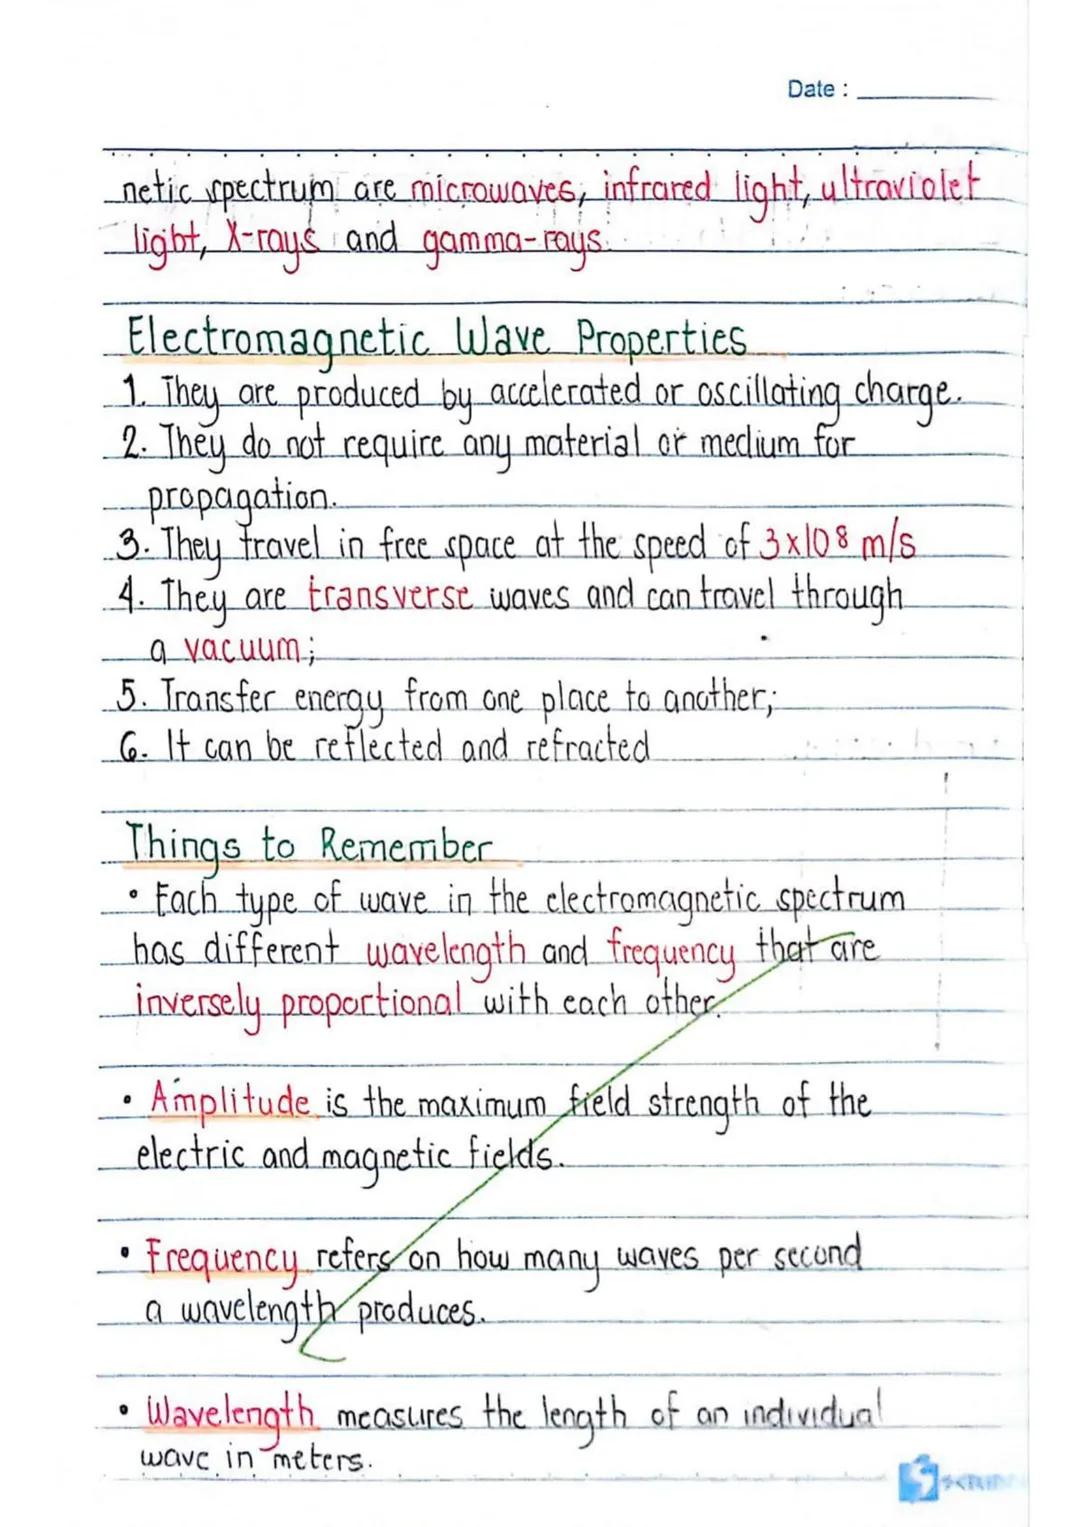 Date :
netic spectrum are microwaves, infrared light, ultraviolet
light, X-rays and gamma-rays.
Electromagnetic Wave Properties
1. They are produced by accelerated or oscillating charge.
2. They do not require any material or medium for
propagation.
3. They travel in free space at the speed of 3x108 m/s
4. They are transverse waves and can travel through
a vacuum;
5. Transfer energy from one place to another;
6. It can be reflected and refracted
Things to Remember
• Each type of wave in the electromagnetic spectrum
has different wavelength and frequency that are
inversely proportional with each other.
• Amplitude is the maximum field strength of the
electric and magnetic fields.
• Frequency refers on how many waves per second
a wavelength produces.
• Wavelength measures the length of an individual
wave in meters.